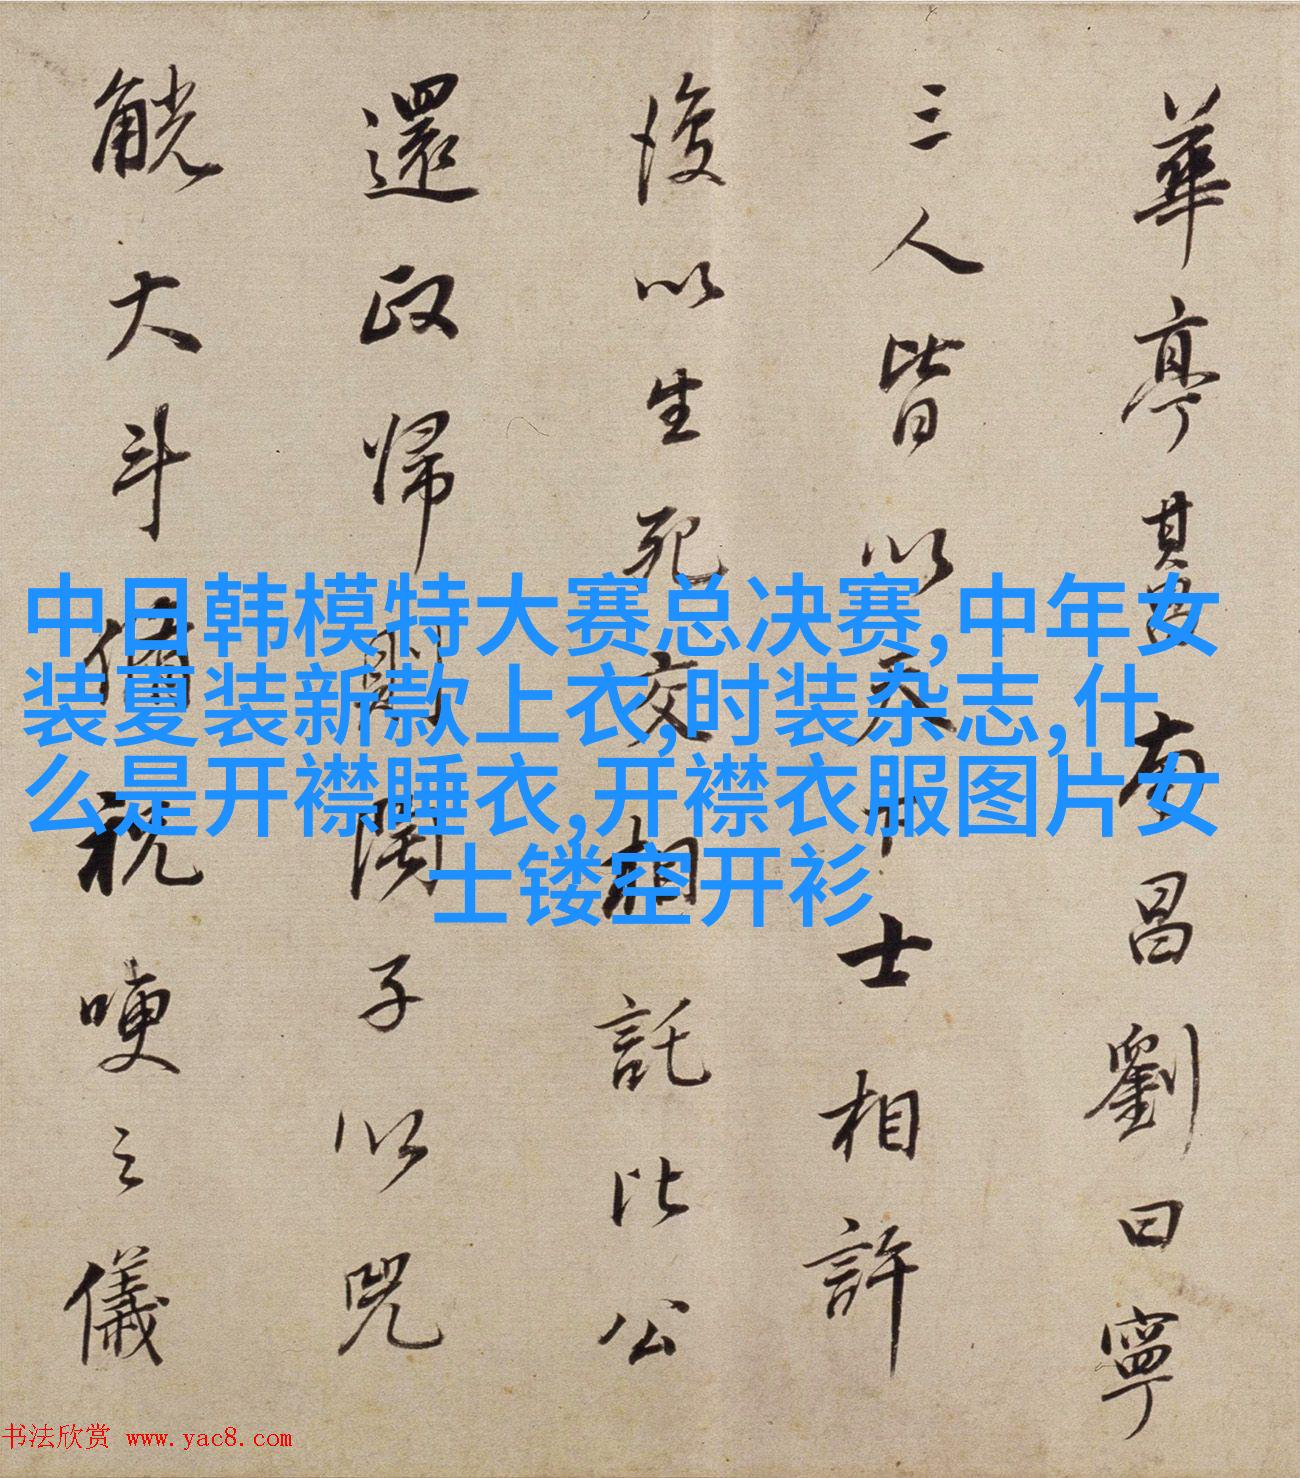 華亭莫昌南昌劉曰寧
三人皆以天下士相許
後以生死交相託比公
還政歸
子以兕
觥大斗
祝哽之儀
中日韩模特大赛总决赛,中年女
装夏装新款上衣,时装杂志,什
么是开襟睡衣,开襟衣服图片女
士镂空开衫
书法欣赏 www.yac8.com